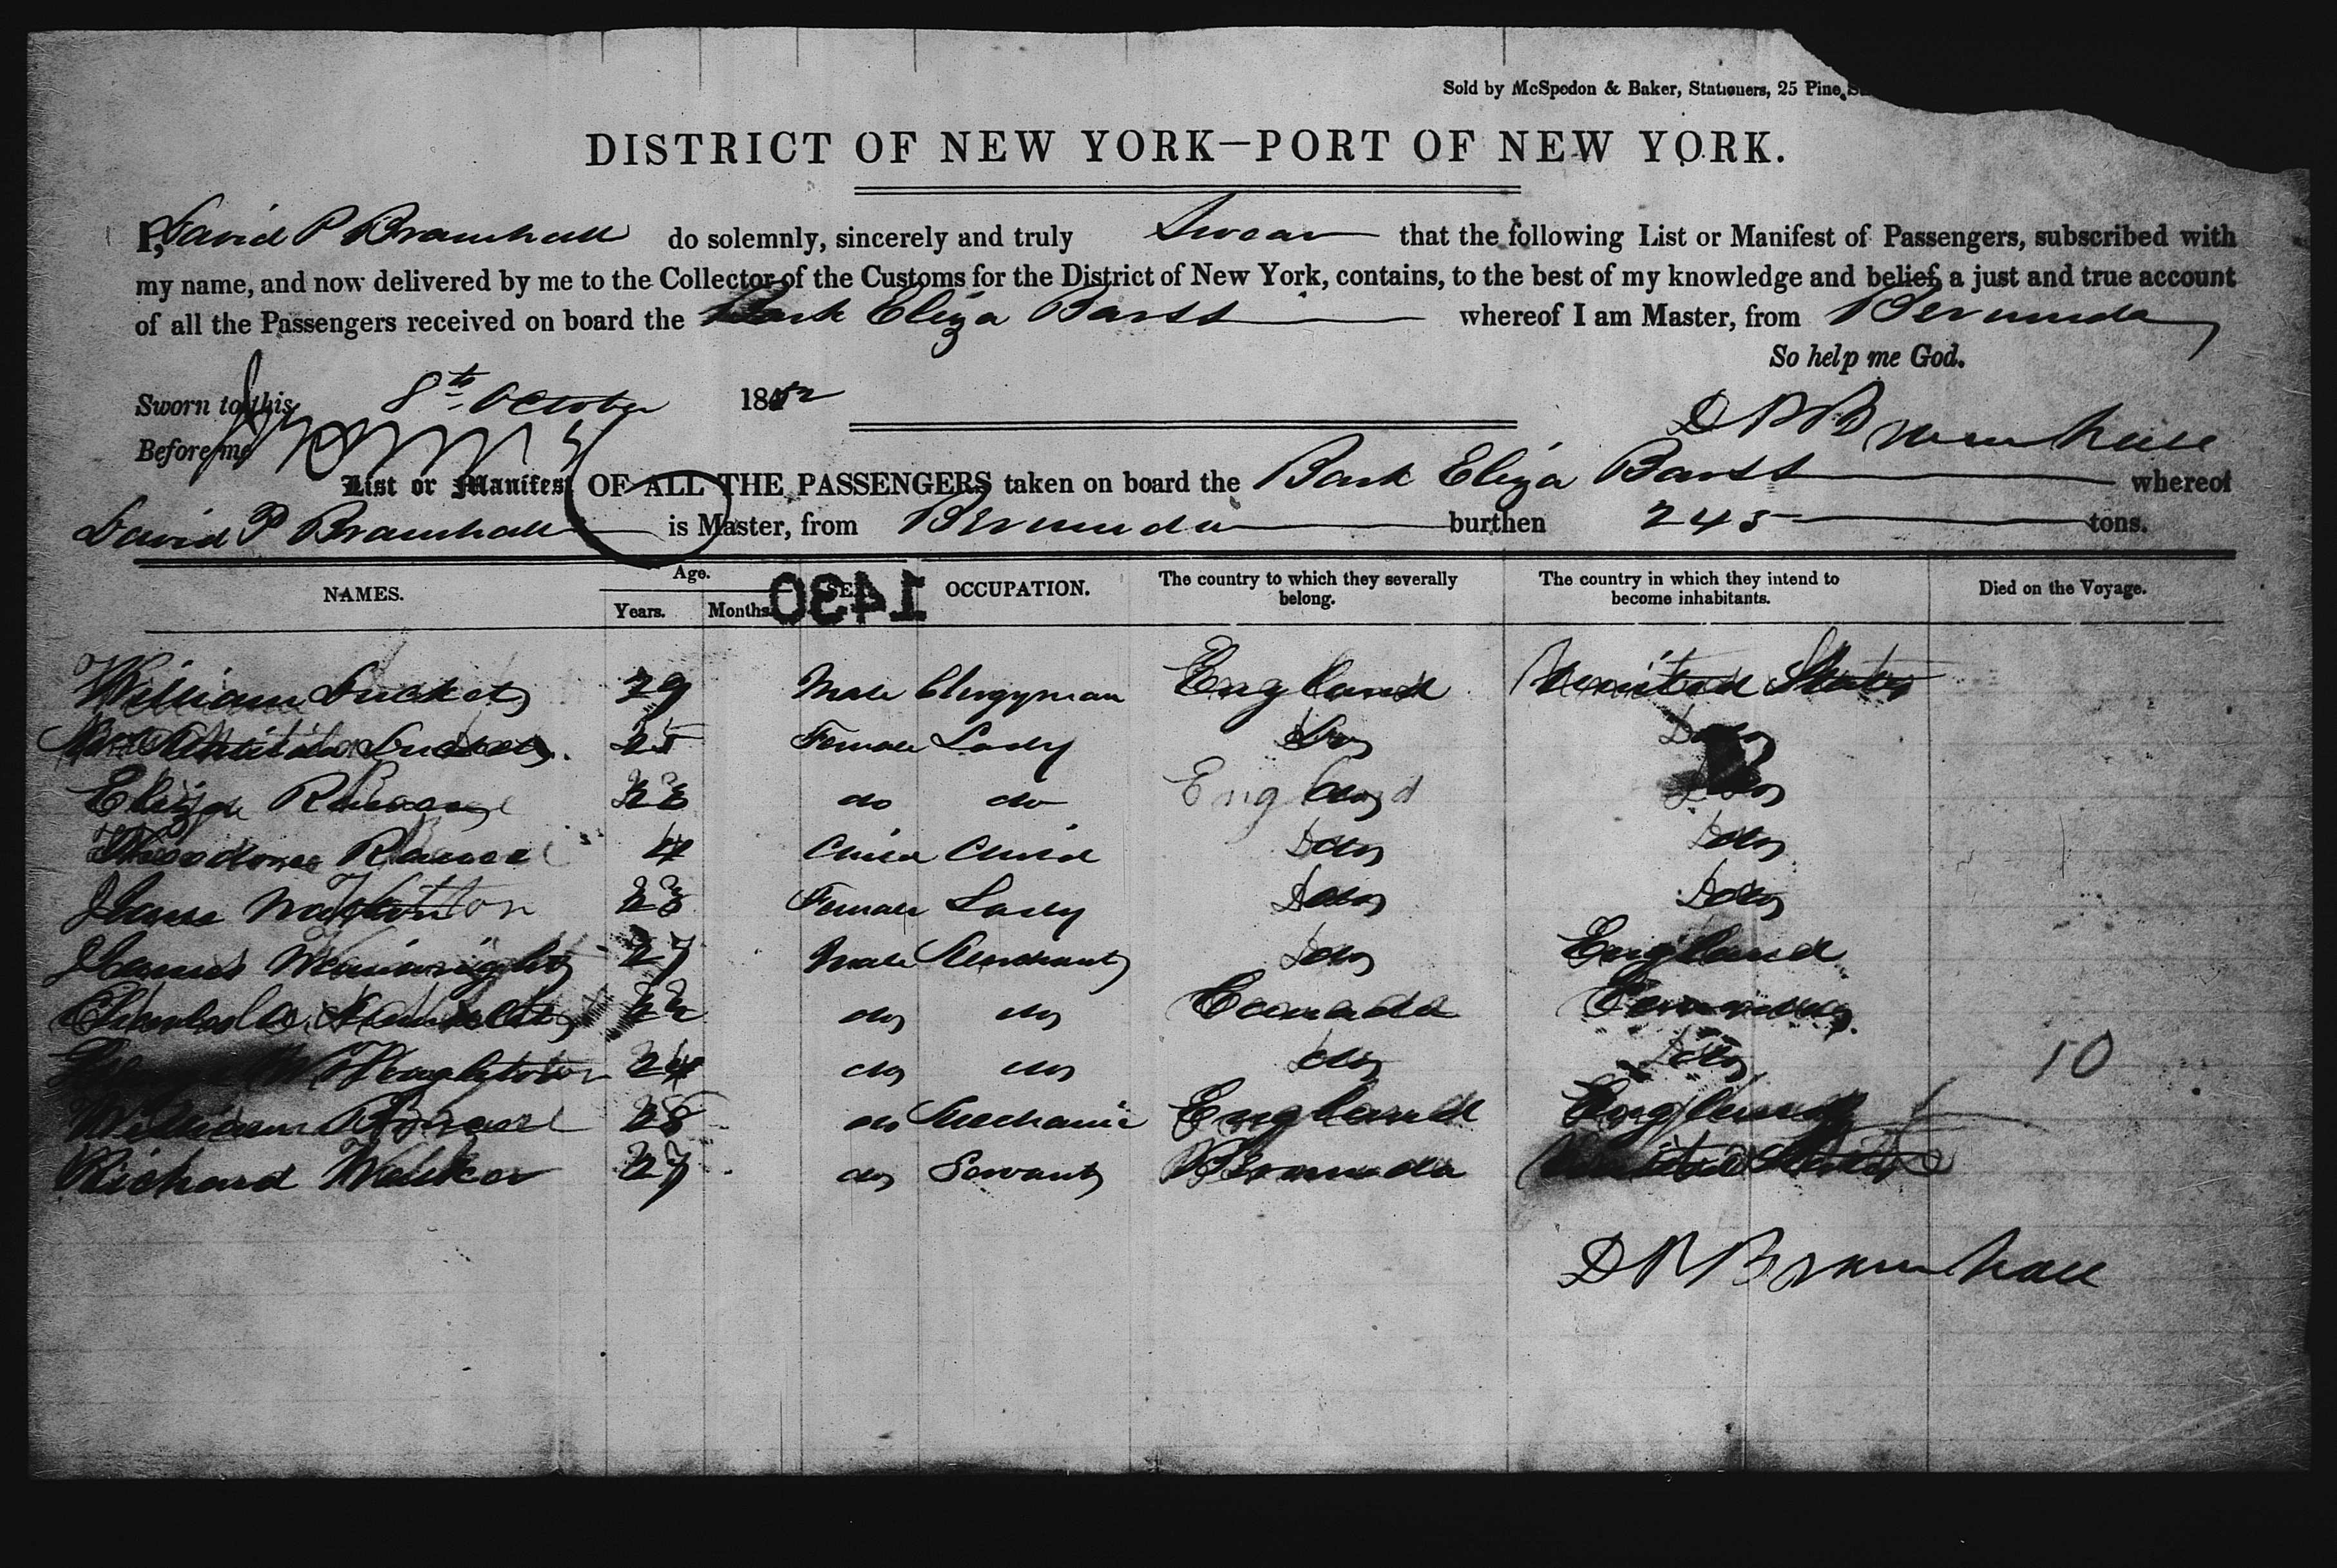 Sold by McSpedon & Baker, Stationers, 25 Pine
DISTRICT OF NEW YORK—PORT OF NEW YORK.
I, David P Bramhall do solemnly, sincerely and truly Swear that the following List or Manifest of Passengers, subscribed with
my name, and now delivered by me to the Collector of the Customs for the District of New York, contains, to the best of my knowledge and belief, a just and true account
of all the Passengers received on board the Bark Eliza Barss whereof I am Master, from Bermuda
So help me God.
Sworn to this 8th October 1852
D P Bramhall
Before me
List or Manifest OF ALL THE PASSENGERS taken on board the Bark Eliza Barss whereof
David P Bramhall is Master, from Bermuda burthen 245 tons.
NAMES. Age. SEX. OCCUPATION. The country to which they severally belong. The country in which they intend to become inhabitants. Died on the Voyage.
Years. Months. 1430
William 29 Male Clergyman England United States
25 Female Lady Do Do
Eliza 23 do do England Do
Theodore 4 Child Child Do Do
23 Female Lady Do Do
James Wainwright 27 Male Merchant Do England
Charles 22 do do Canada
24 do do do do
10
William 28 do Mechanic England England
Richard Walker 27 do Servant Bermuda United States
D P Bramhall